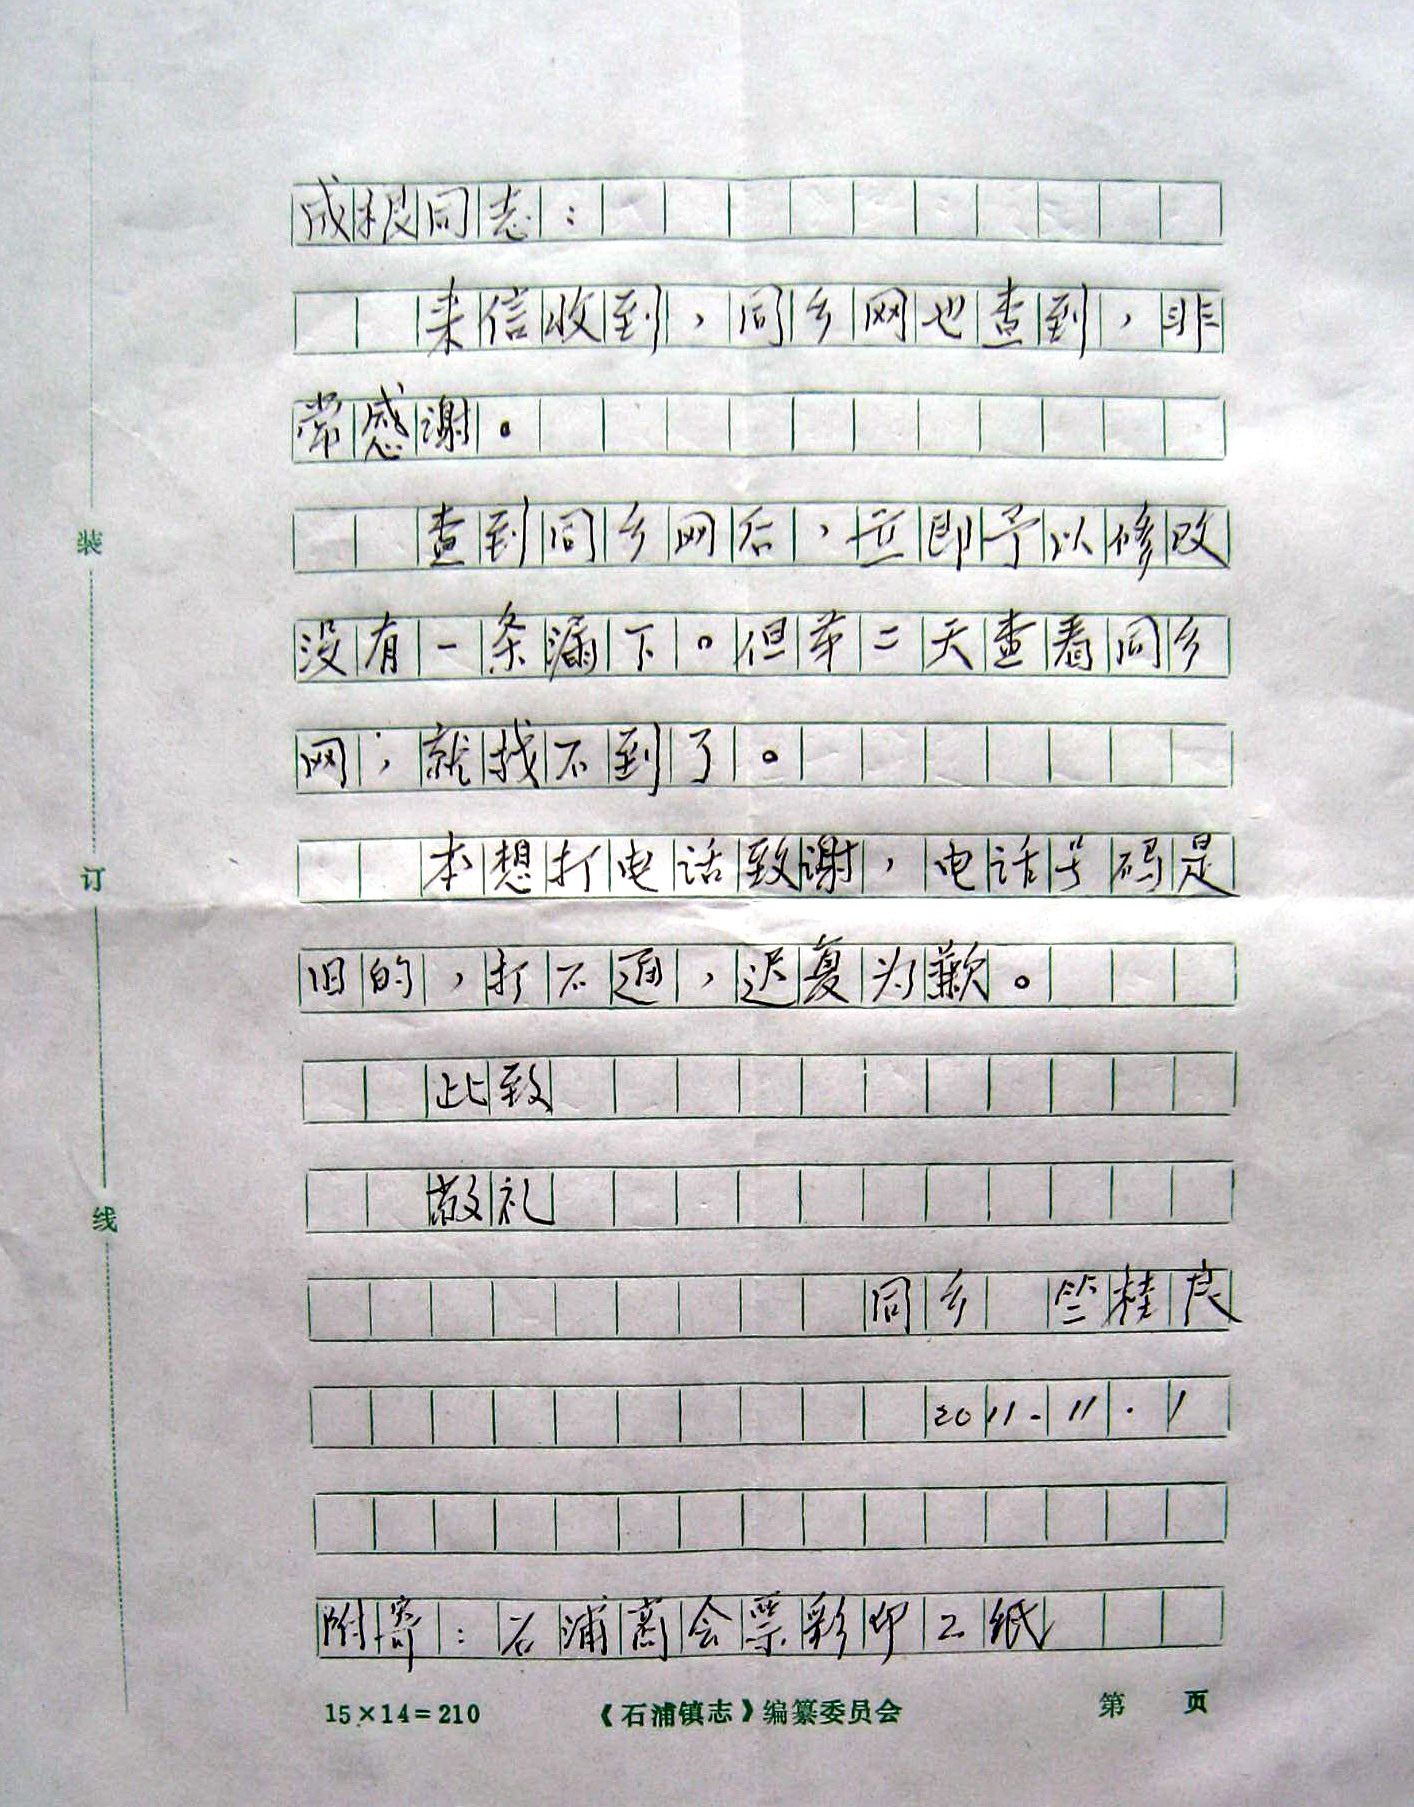 成根同志：
来信收到，同乡网也查到，非
常感谢。
查到同乡网后，立即予以修改
没有一条漏下。但第二天查看同乡
网，就找不到了。
本想打电话致谢，电话号码是
旧的，打不通，迟复为歉。
此致
敬礼
同乡 竺桂良
2011.11.1
附寄：石浦商会票彩印2纸
15×14=210 《石浦镇志》编纂委员会 第 页
装
订
线